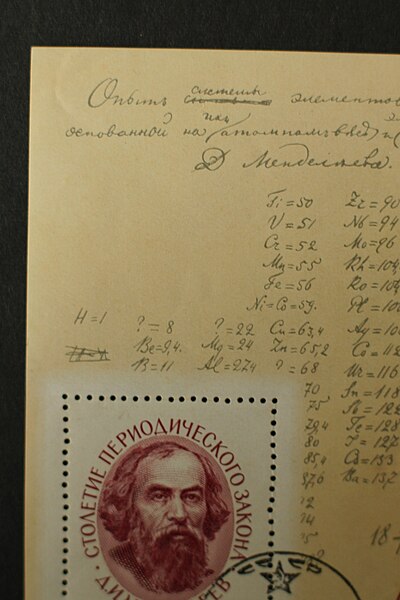 Опытъ системы элементов
основанной на ихъ атомномъ вѣсѣ и
Д Менделѣева.
Ti=50 Zr=90
V=51 Nb=94
Cr=52 Mo=96
Mn=55 Rh=104
Fe=56 Ro=104
Ni=Co=59. Pl=10
H=1 ?=8 ?=22 Cu=63,4 Ag=10
Be=9,4. Mg=24 Zn=65,2 Ca=112
B=11 Al=27,4 ?=68 Ur=116
70 Sn=118
75 Sb=122
79,4 Te=128
80 I=127
85,4 Cs=133
87,6 Ba=137
18
СТОЛЕТИЕ ПЕРИОДИЧЕСКОГО ЗАКОНА